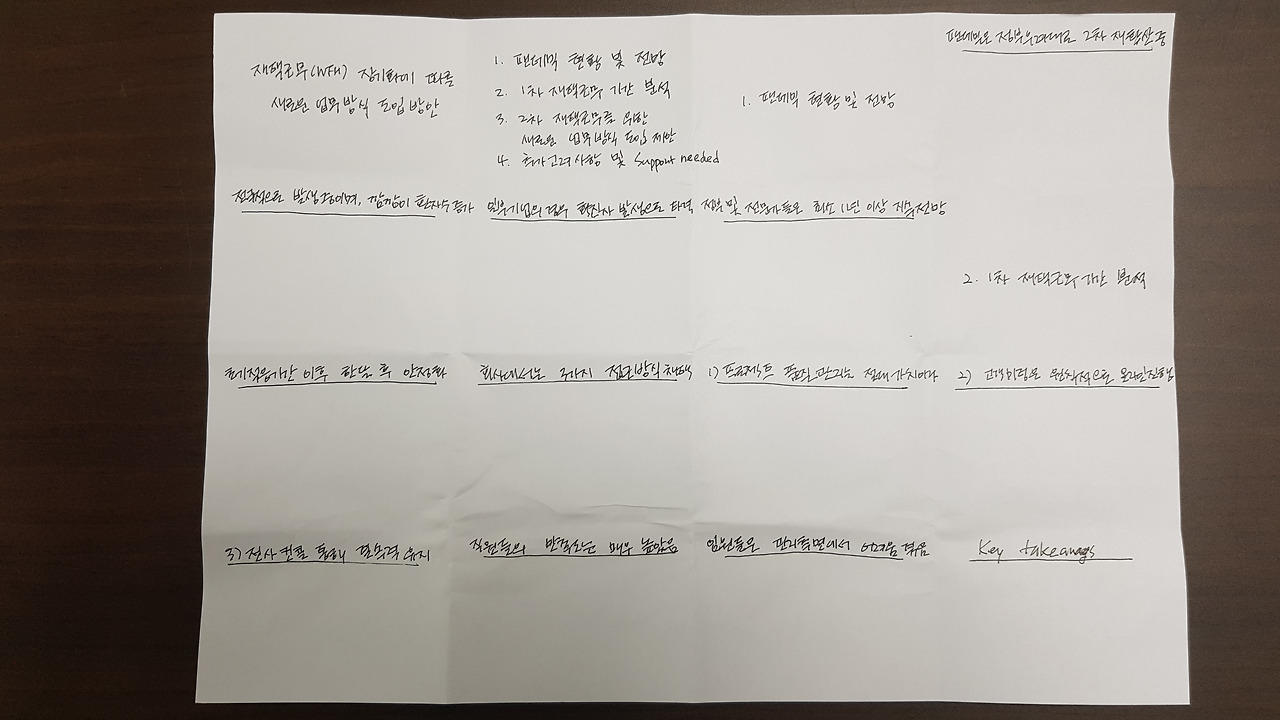 재택근무(WFH) 장기화에 따른
새로운 업무방식 도입 방안
1. 팬데믹 현황 및 전망
2. 1차 재택근무 기간 분석
3. 2차 재택근무를 위한
새로운 업무방식 도입 제안
4. 추가 고려사항 및 Support needed
1. 팬데믹 현황 및 전망
팬데믹은 정부의 2차 재확산 중
전국적으로 발생중이며, 깜깜이 환자수 증가
일부기업의 경우 확진자 발생으로 타격
정부 및 전문가들은 최소 1년 이상 지속 전망
2. 1차 재택근무 기간 분석
초기적응기간 이후 한달 후 안정화
회사에서는 3가지 접근방식 채택
1) 프로젝트 품질관리는 절대가치이다
2) 고객미팅은 원칙적으로 온라인진행
3) 전사 콜을 통해 결속력 유지
직원들의 만족도는 매우 높았음
임원들은 관리측면에서 어려움 겪음
Key takeaways